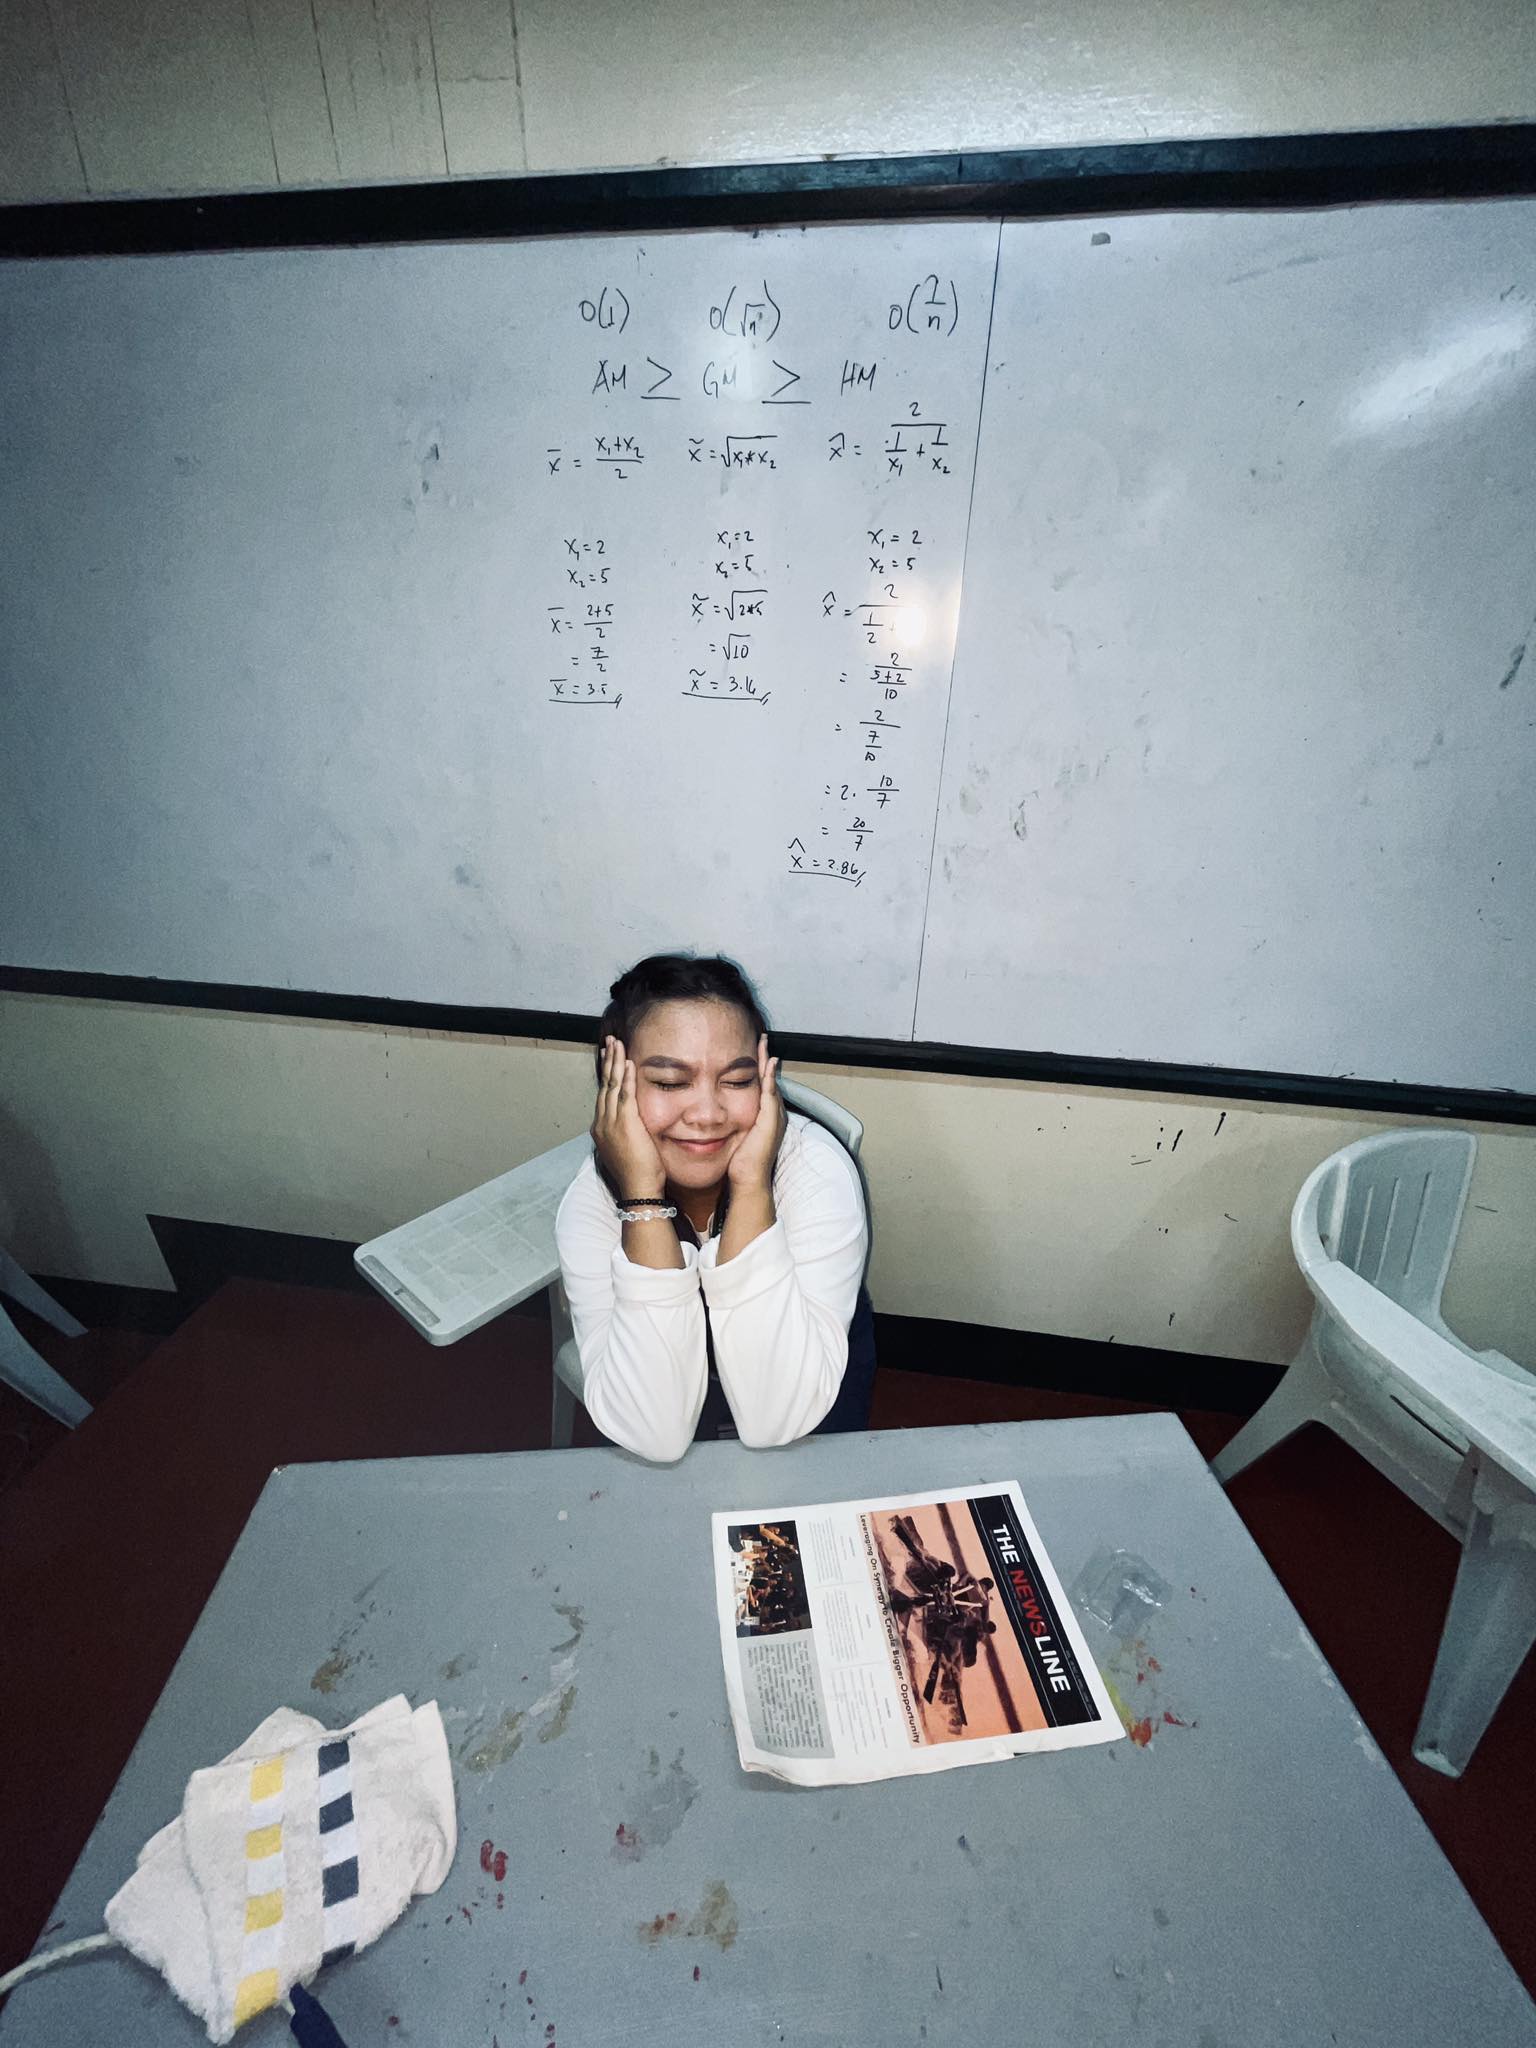 O(1) O(√n) O(1/n)
AM ≥ GM ≥ HM
x̄ = (x₁+x₂)/2
x₁=2
x₂=5
x̄ = (2+5)/2
= 7/2
x̄ = 3.5
x̃ = √(x₁*x₂)
x₁=2
x₂=5
x̃ = √(2*5)
= √10
x̃ = 3.16
x̂ = 2/(1/x₁ + 1/x₂)
x₁ = 2
x₂ = 5
x̂ = 2/(1/2 +
= 2/((5+2)/10)
= 2/(7/10)
= 2 · 10/7
= 20/7
x̂ = 2.86
THE NEWSLINE
Leveraging On Synergy to Create Bigger Opportunity